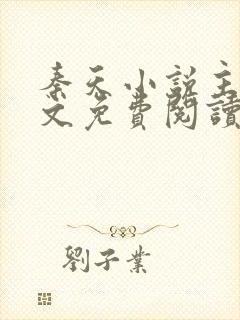 秦天小説主
文免費閱讀
劉子業